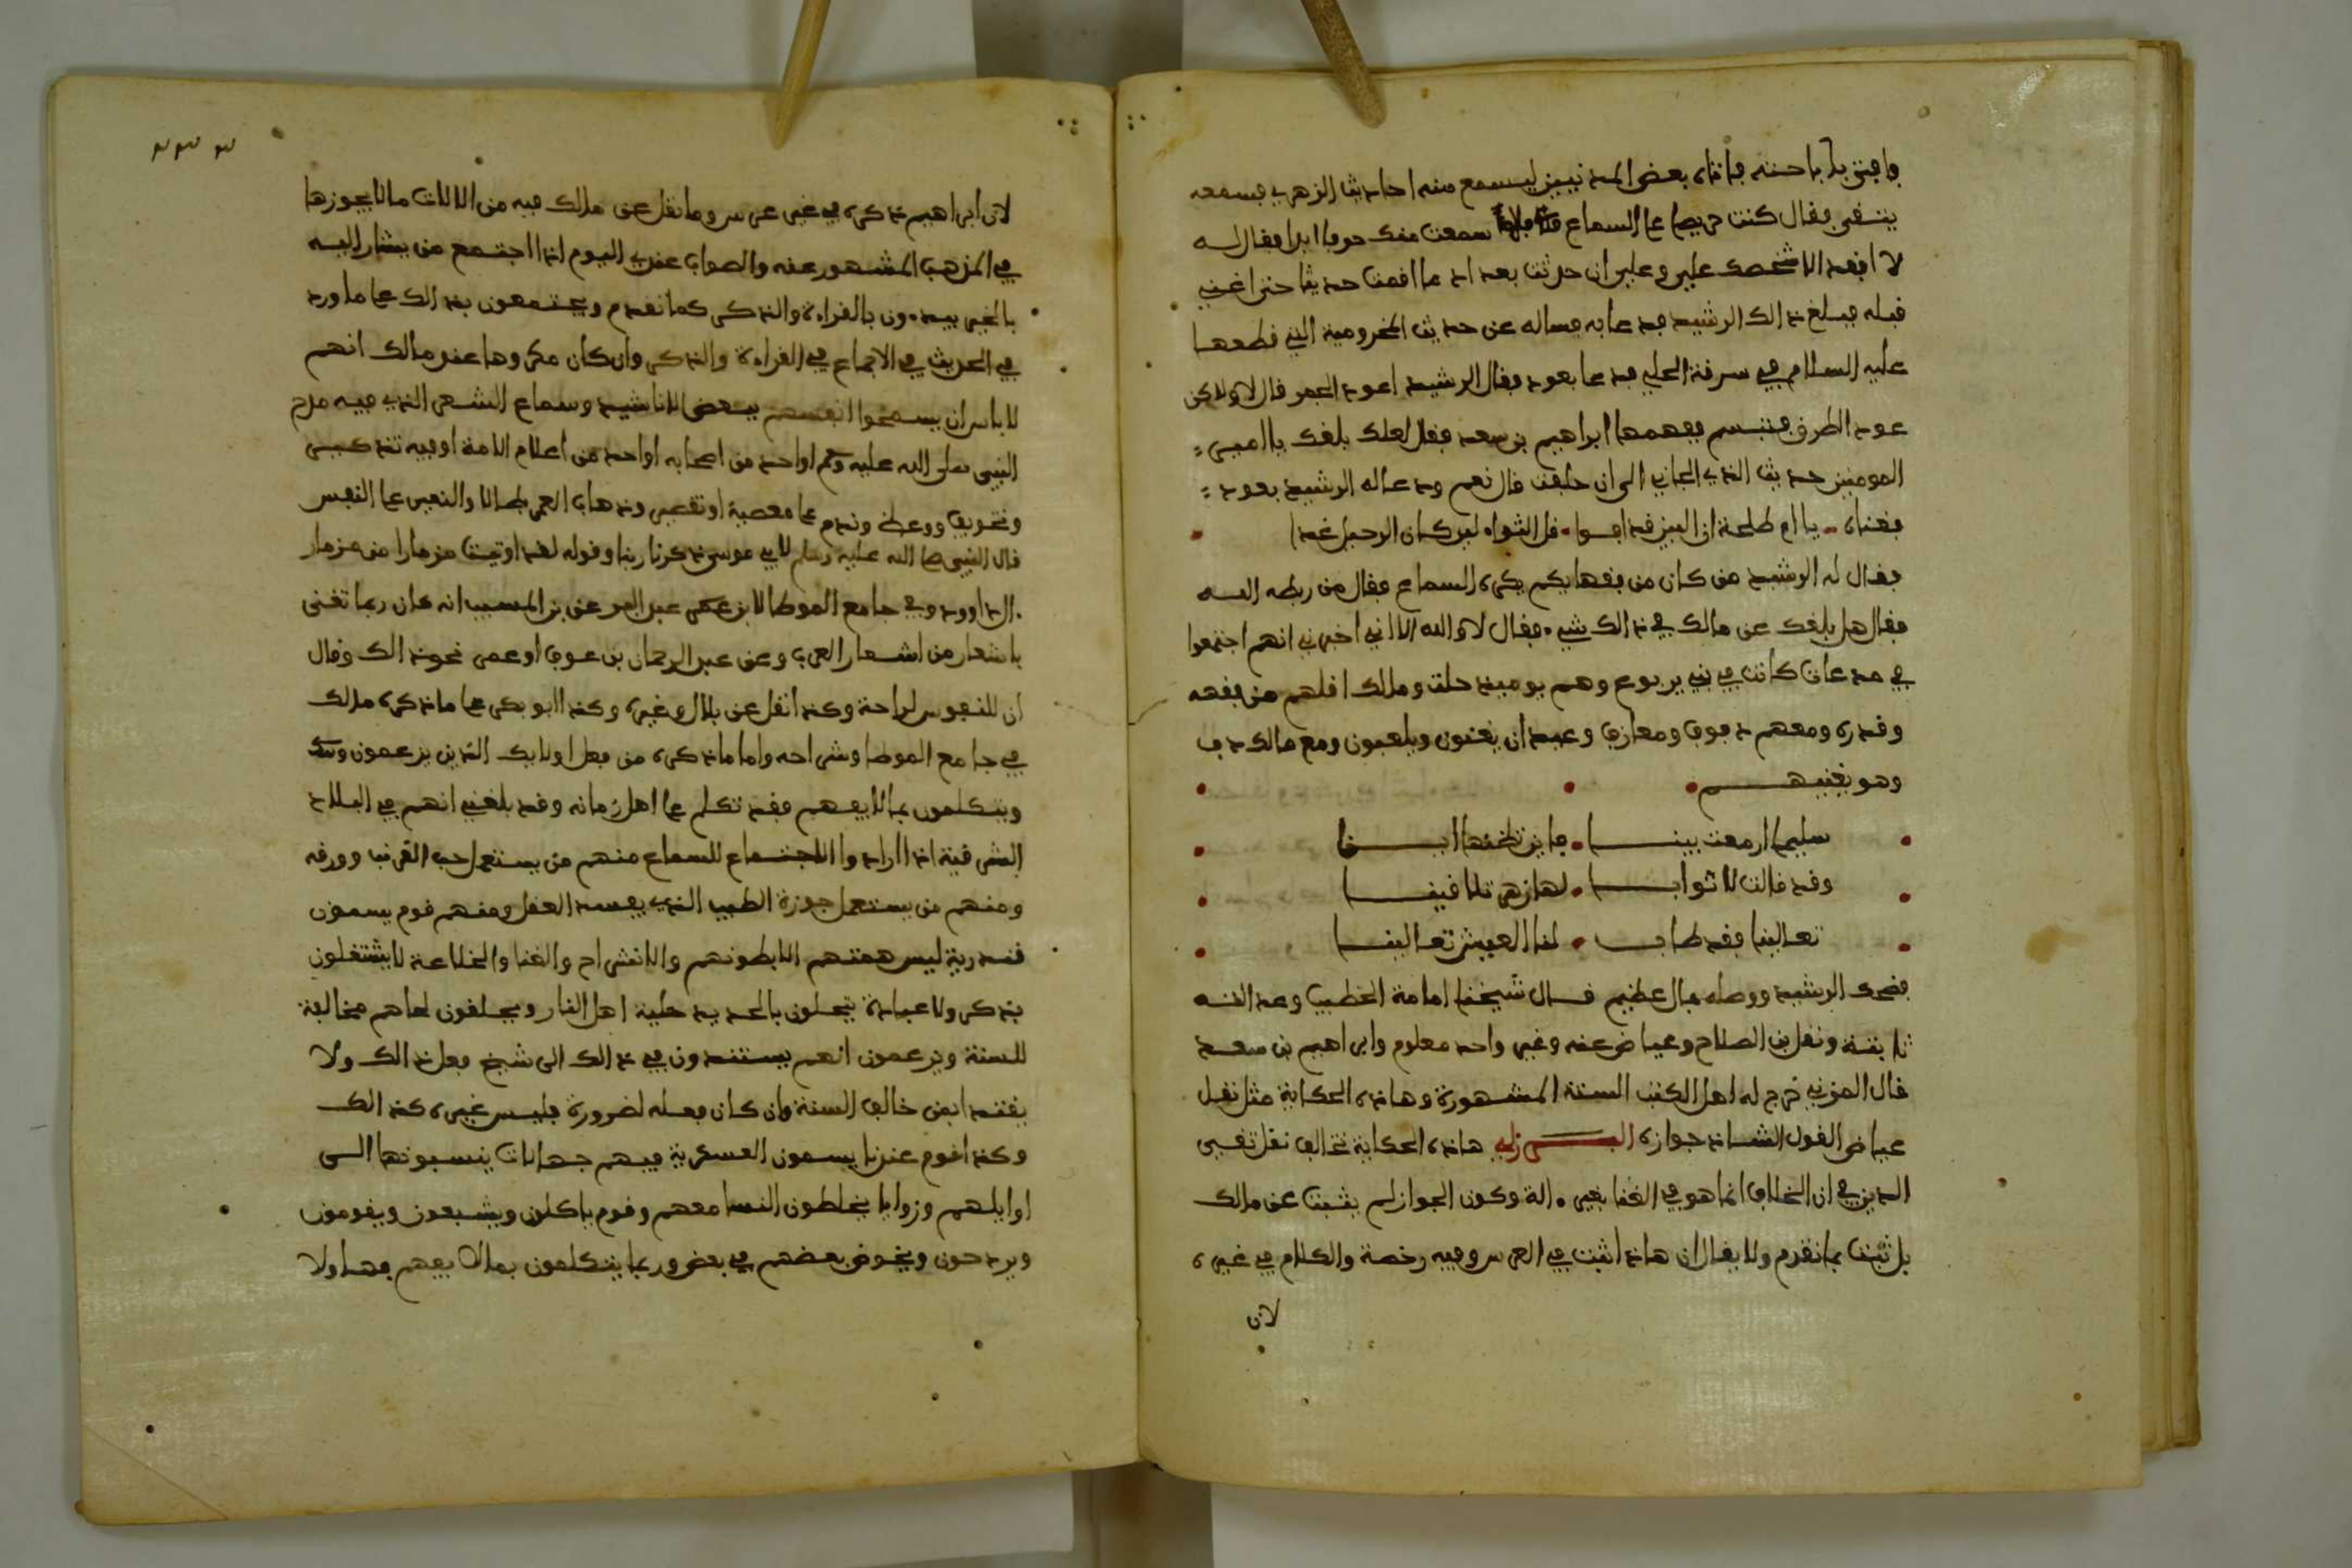 فافتى بإباحته فأتاه بعض المدنيين ليسمع منه احاديث الزهري فسمعه
يتغنى فقال كنت حريصا على السماع سمعت منك حرفا ابدا فقال له
لا افقد الا شخصك علي وعلي ان حدثت بعد ان ما اقمت حديثا حتى اغني
قبله فبلغ ذالك الرشيد فدعا به فساله عن حديث المخزومية التي قطعها
عليه السلام في سرقة الحلي فدعا بعود فقال الرشيد اعود الجمر قال لا ولاكن
عود الطرب فتبسم ففهمها ابراهيم بن سعد فقال لعلك بلغك يا امير
المومنين حديث الذي الجاني الى ان حلفت قال نعم ودعا له الرشيد بعود
فغناه يا ام طلحة ان البين قد افدا قل الثواء لين كان الرحيل غدا
فقال له الرشيد من كان من فقهايكم يكره السماع فقال من ربطه الله
فقال هل بلغك عن مالك في ذالك شيء فقال لا والله الا ان ابي اخبرني انهم اجتمعوا
في مدعاة كانت في بني يربوع وهم يوميذ جلة ومالك اقلهم من فقهه
وقدره ومعهم دفوف ومعازف وعيدان يغنون ويلعبون ومع مالك دف
وهو يغنيهم
سليمى ازمعت بينا فاين تظنها اينا
وقد قالت لاتراب لها زهر تلاقينا
تعالينا فقد طاب لنا العيش تعالينا
فضحك الرشيد ووصله بمال عظيم قال شيخنا امامة الخطيب وعدالته
ثابتة ونقل بن الصلاح وعياض عنه وغير واحد معلوم وابراهيم بن سعد
قال المزني خرج له اهل الكتب الستة المشهورة وهاذه الحكاية مثل نقل
عياض القول الشاذ جوازه البرزلي هاذه الحكاية تخالف نقل تقي
الدين في ان الخلاف انما هو في الغنا بغير الة وكون الجواز لم يثبت عن مالك
بل ثبت بما تقدم ولا يقال ان هاذا ثبت في العرس وفيه رخصة والكلام في غيره
لان
لان ابراهيم ذكره في غير عرس وما نقل عن مالك فيه من الالات ما لا يجوزها
في المذهب المشهور عنه والصواب عندي اليوم اذا اجتمع من يشار اليه
بالخير يبدءون بالقراءة والذكر كما تقدم ويجتمعون بذالك على ما ورد
في الحديث في الاجماع في القراءة والذكر وان كان مكروها عند مالك انهم
لا باس ان يسمحوا انفسهم ببعض الاناشيد وسماع الشعر الذي فيه مدح
النبي صلى الله عليه وسلم او احد من اصحابه او احد من اعلام الامة او فيه تذكير
وتخويف ووعظ وندم على معصية او تقصير وذهاب العمر بطالا والنعي على النفس
قال النبي صلى الله عليه وسلم لابي موسى ذكرنا ربنا وقوله لقد اوتيت مزمارا من مزمار
ال داوود وفي جامع الموطا لابن عبد البر عن بن المسيب انه كان ربما تغنى
باشعار من اشعار العرب وعن عبد الرحمان بن عوف او عمر نحو ذالك وقال
ان للنفوس لراحة وكذا نقل عن بلال وغيره وكذا ابو بكر على ما ذكره مالك
في جامع الموطا وشراحه واما ما ذكره من فعل اولايك الذين يزعمون
ويتكلمون بما لا يفهم فقد تكلم على اهل زمانه وقد بلغني انهم في البلاد
الشرقية اذا ارادوا الاجتماع للسماع منهم من يستعمل حب القرنب وورقه
ومنهم من يستعمل جوزة الطيب الذي يفسد العقل ومنهم قوم يسمون
قندرية ليس همتهم الا بطونهم والانشراح والغنا والخلاعة لا يشتغلون
بذكر ولا عبادة يتحلون بالحديد حلية اهل النار ويحلقون لحاهم مخالفة
للسنة ويزعمون انهم يستندون في ذالك الى شيخ فعل ذالك ولا
يقتدا بمن خالف السنة وان كان فعله لضرورة فليس غيره كذالك
وكذا قوم عندنا يسمون العسكرية فيهم جهالات ينسبونها الى
اوايلهم وزوايا يخلطون النسا معهم وقوم ياكلون ويشبعون ويقومون
ويردحون ويخوض بعضهم في بعض وربما يتكلمون بما لا يفهم فهاولا